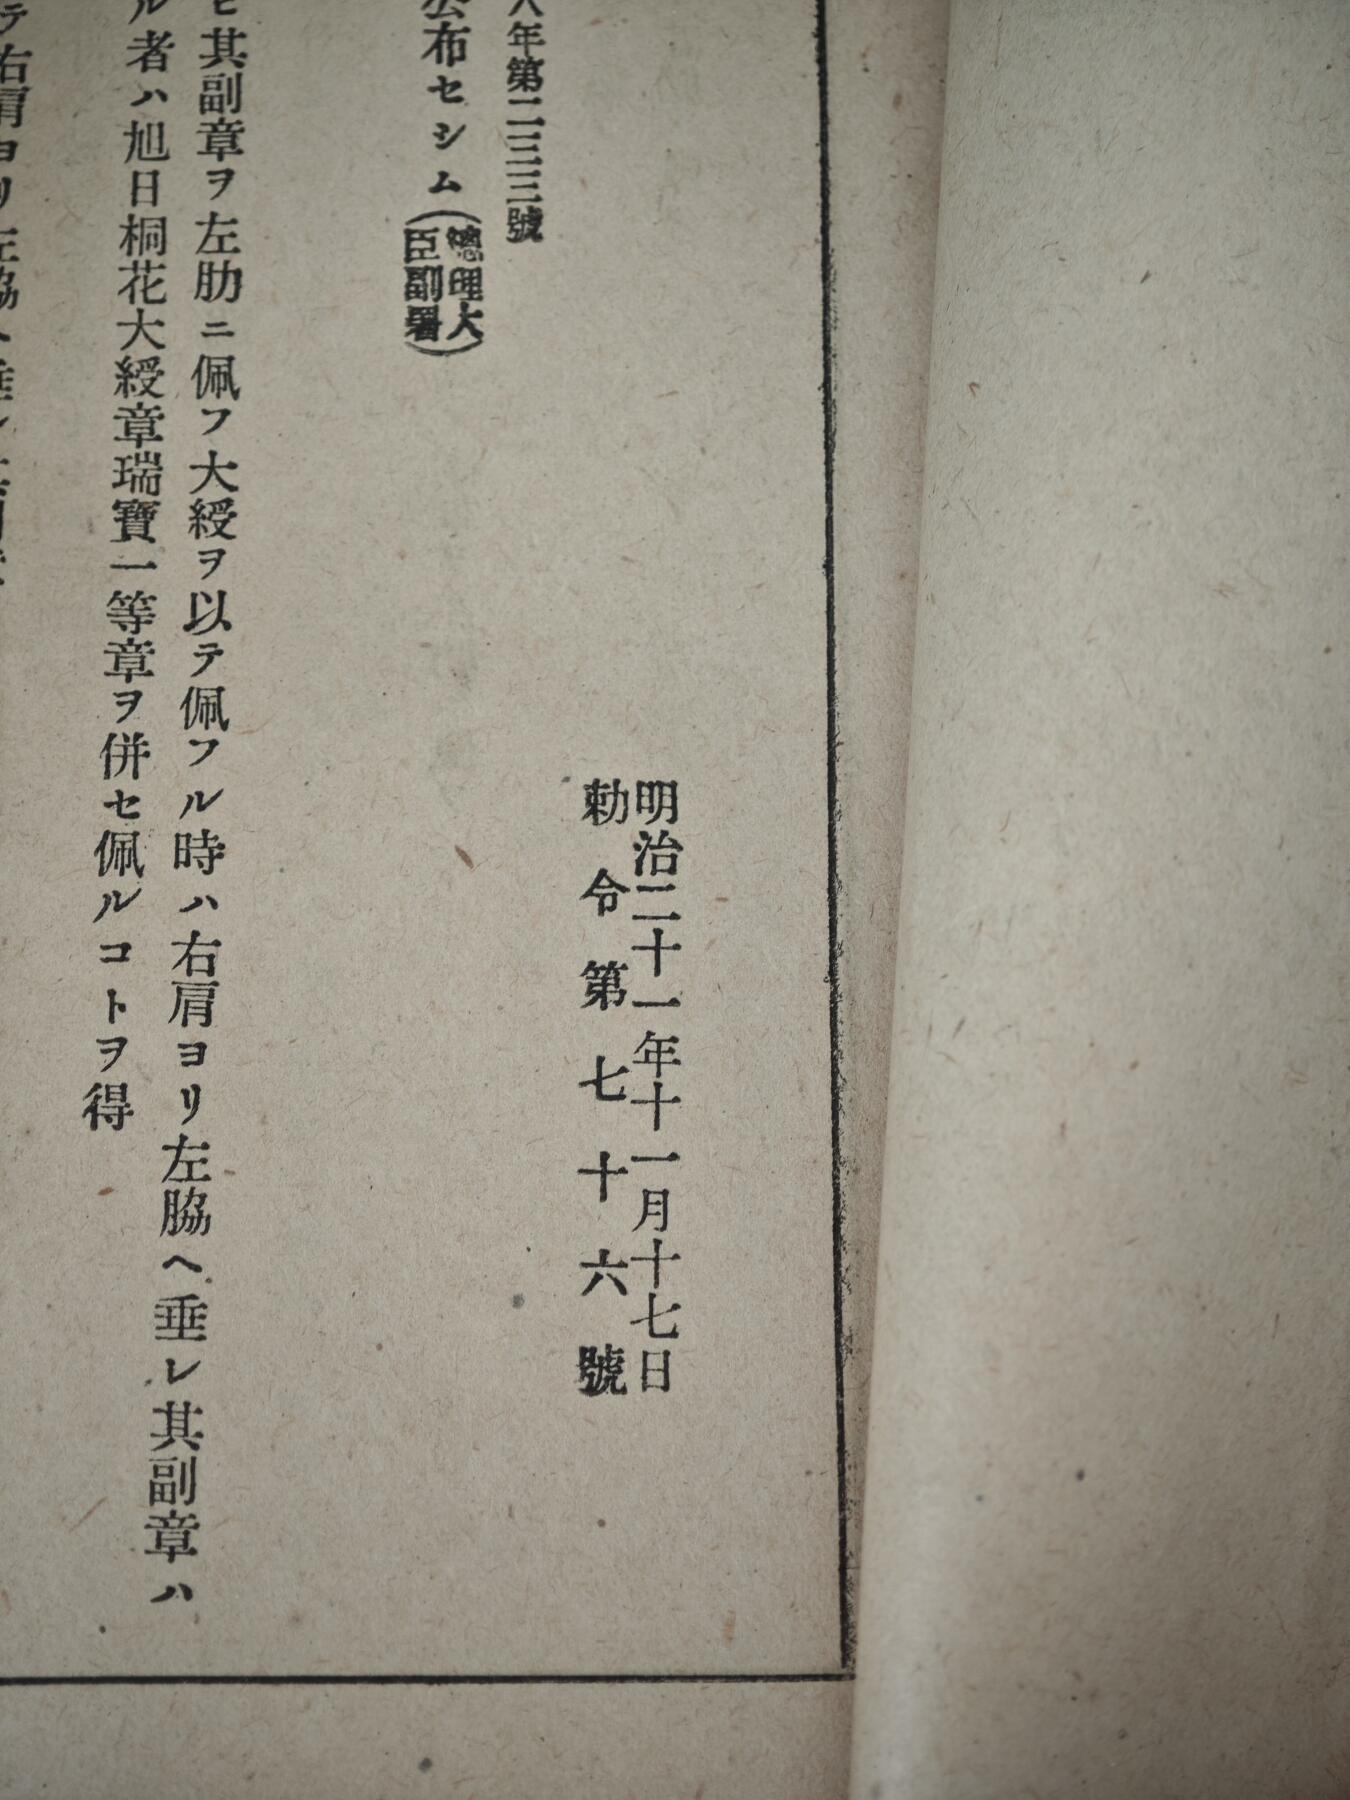 明治二十一年十一月十七日
勅令第七十六號
年第二三三號
公布セシム(總理大臣副署)
其副章ヲ左肋ニ佩フ大綬ヲ以テ佩フル時ハ右肩ヨリ左脇ヘ垂レ其副章ハ
ル者ハ旭日桐花大綬章瑞寶一等章ヲ併セ佩ルコトヲ得
テ右肩ヨリ左脇ヘ垂レ